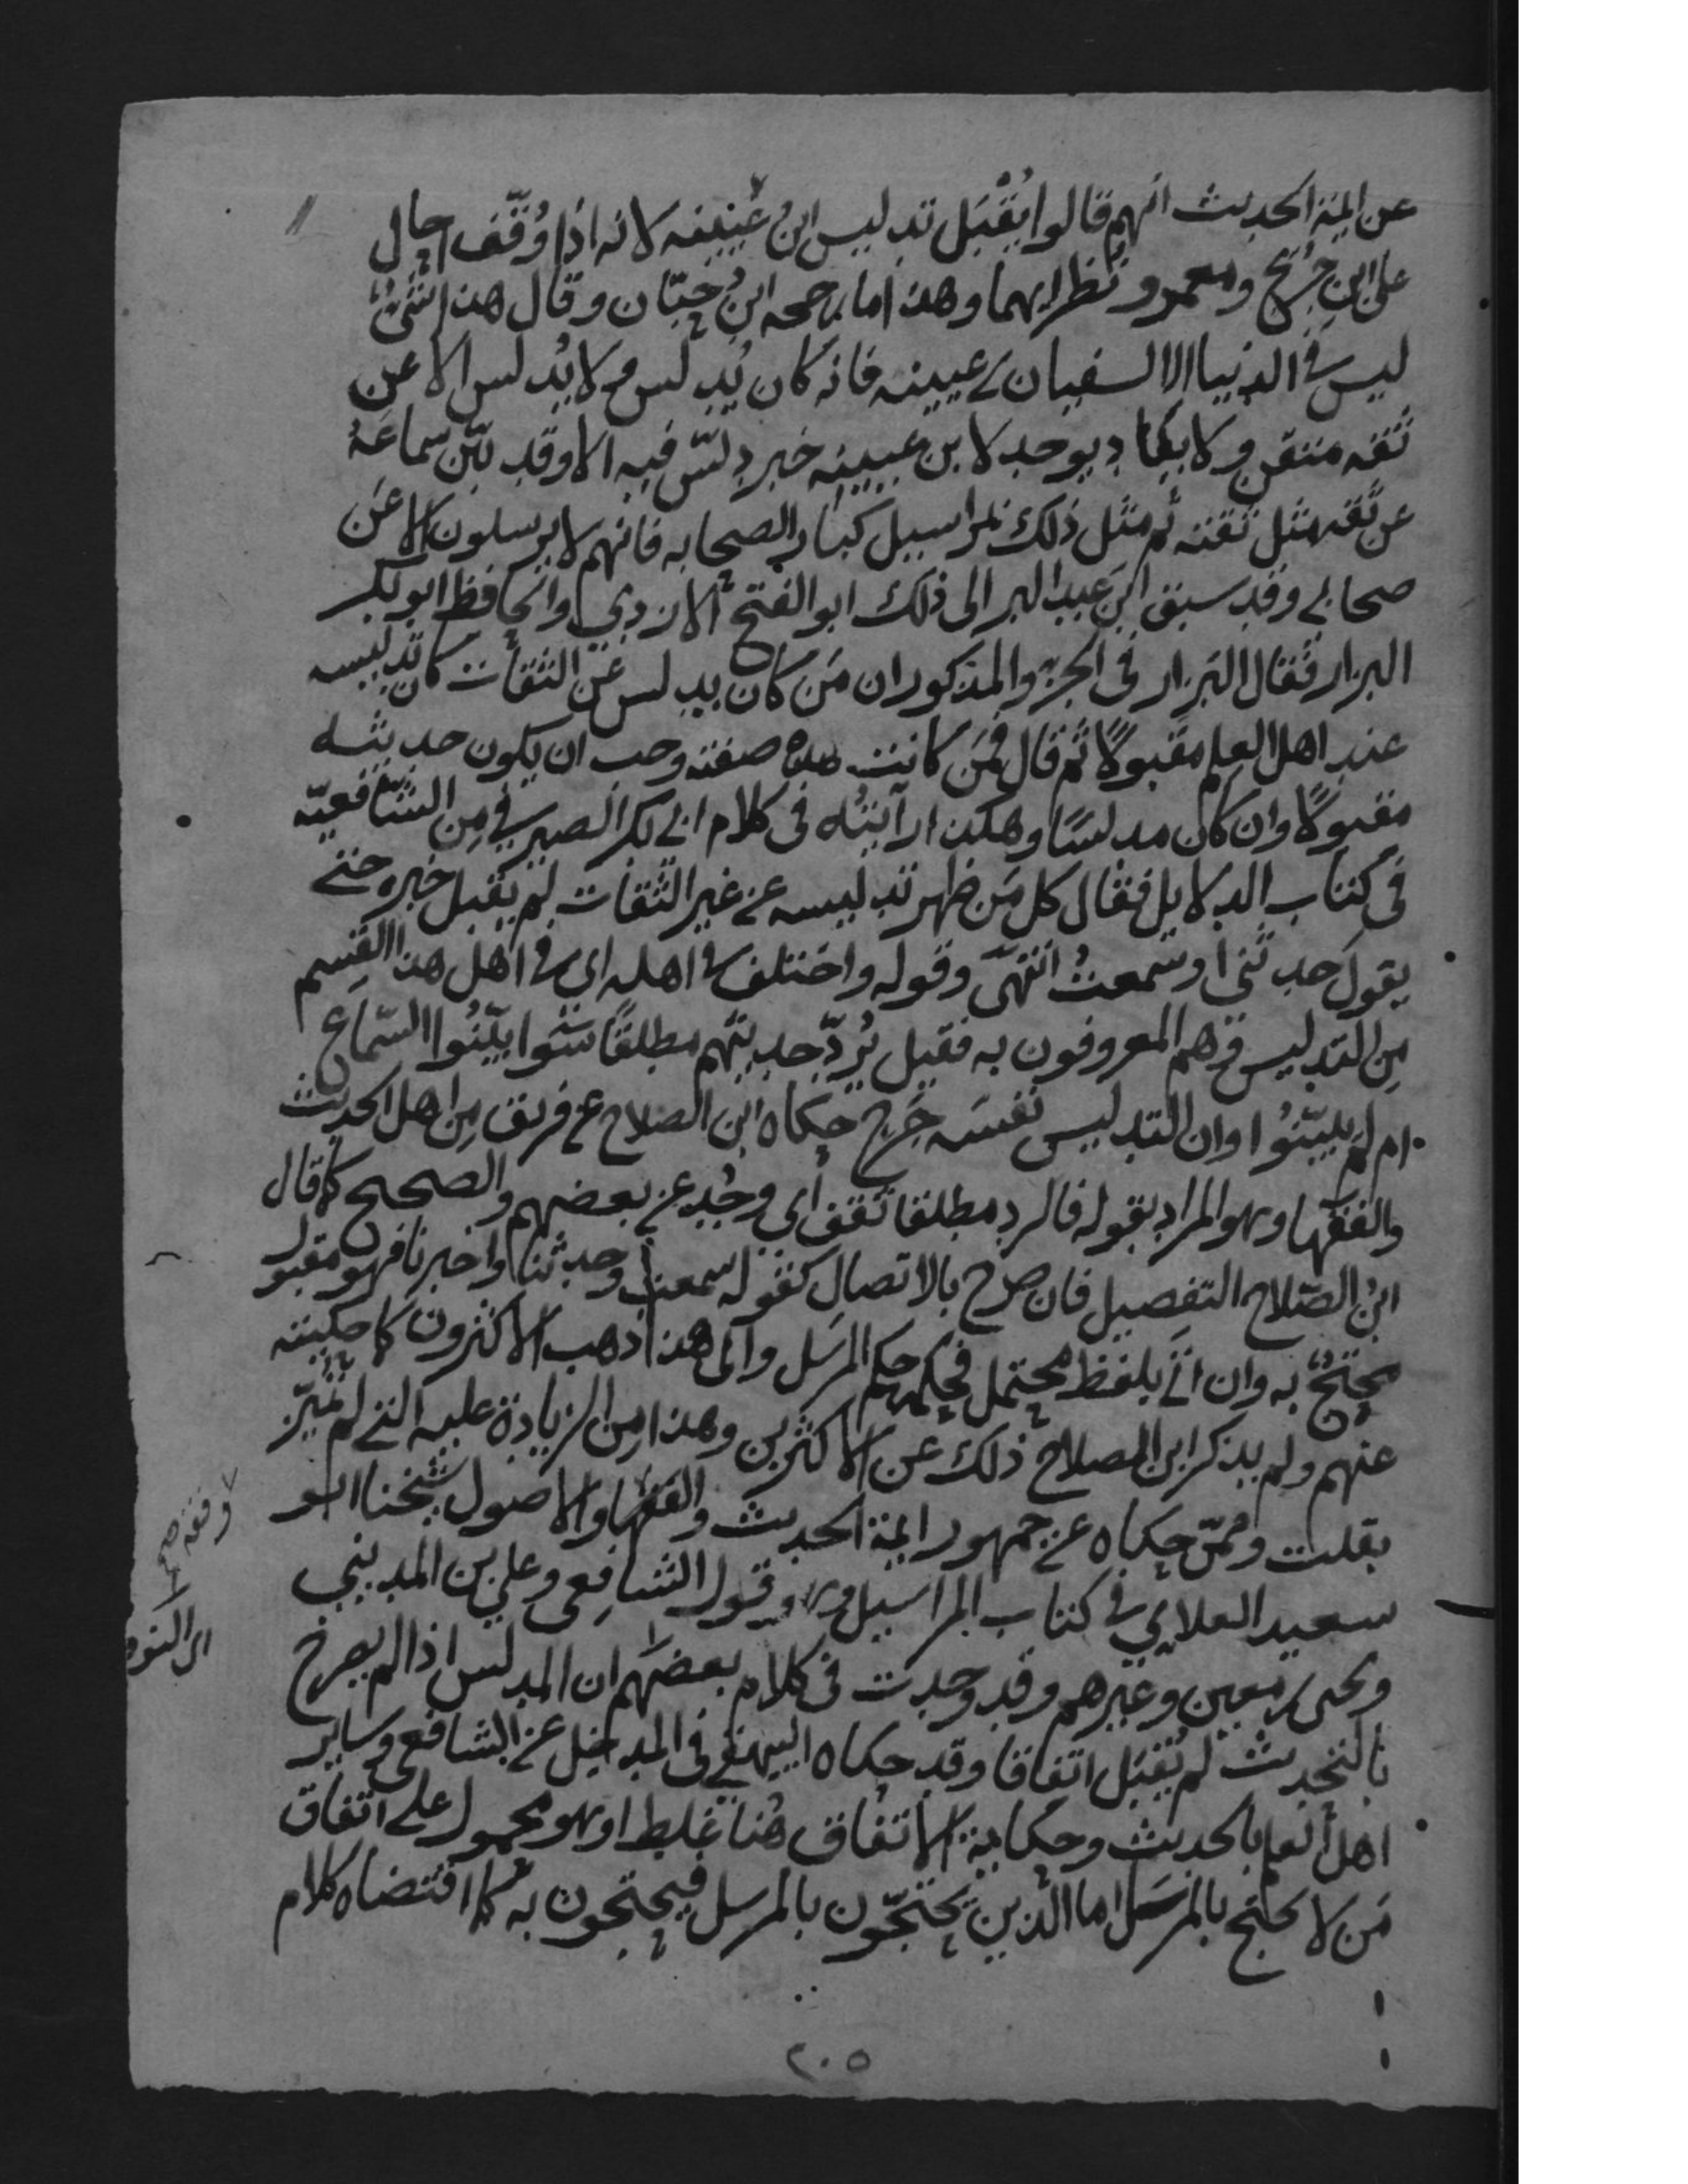 عن ايمة الحديث انهم قالوا يُقْبَل تدليس ابن عُيينه لانه اذا وُقّف احال
على ابن جريج ومعمر ونظرايهما وهذا ما رجحه ابن حبّان وقال هذا شئ
ليس في الدنيا الا لسفيان بن عيينه فانه كان يُدلس ولا يُدلس الا عن
ثقه متقن ولا يكاد يوجد لابن عيينه خبر دلّس فيه الا وقد بيّن سماعَهُ
عن ثقه مثل ثقته ثم مثل ذلك بمراسيل كبار الصحابه فانهم لا يرسلون الا عن
صحابي وقد سبق ابن عبد البر الى ذلك ابو الفتح الازدي والحافظ ابو بكر
البزار فقال البزار في الجزء المذكور ان مَن كان يدلس عن الثقات كان تدليسه
عند اهل العلم مقبولًا ثم قال فمن كانت هذه صفته وجب ان يكون حديثه
مقبولًا وان كان مدلسًا وهكذا رايته في كلام ابي بكر الصيرفي من الشافعيّه
في كتاب الدلايل فقال كل مَن ظهر تدليسه عن غير الثقات لم يُقبل خبره حتى
يقول حدثني او سمعتُ انتهى وقوله واختلف في اهله اي في اهل هذا القسم
مِن التدليس وهم المعروفون به فقيل يُردّ حديثهم مطلقًا سَوا بيّنُوا السّماع
ام لم يبيّنُوا وان التدليس نفسَه جَرح حكاه ابن الصلاح عن فريق من اهل الحديث
والفقها وهو المراد بقوله فالرد مطلقا ثقف اي وجُد عن بعضهم والصحيح كما قال
ابن الصّلاح التفصيل فان صرح بالاتصال كقوله سمعت وحدثنا واخبرنا فهو مقبول
محتجّ به وان اتى بلفظ محتمل فحكمه حكم المرسَل والى هذا ذهب الاكثرون كما حكيته
عنهم ولم يذكر ابن الصلاح ذلك عن الاكثرين وهذا من الزيادة عليه التي لم تُميّز
بقلت وممّن حكاه عن جمهور ايمة الحديث والفقها والاصول شيخنا ابو
سعيد العلايي في كتاب المراسيل وهو قول الشافعي وعلي بن المديني
ويحيى بن معين وغيرهم وقد وجدت في كلام بعضهم ان المدلس اذا لم يصرح
بالتحديث لم يُقبَل اتفاقا وقد حكاه البيهقي في المدخل عن الشافعي وساير
اهل العلم بالحديث وحكاية الاتفاق هُنا غلط او هو محمول على اتفاق
مَن لا يحتج بالمرسَل اما الذين يحتجّون بالمرسل فيحتجون به كما اقتضاه كلام
٢٠٥